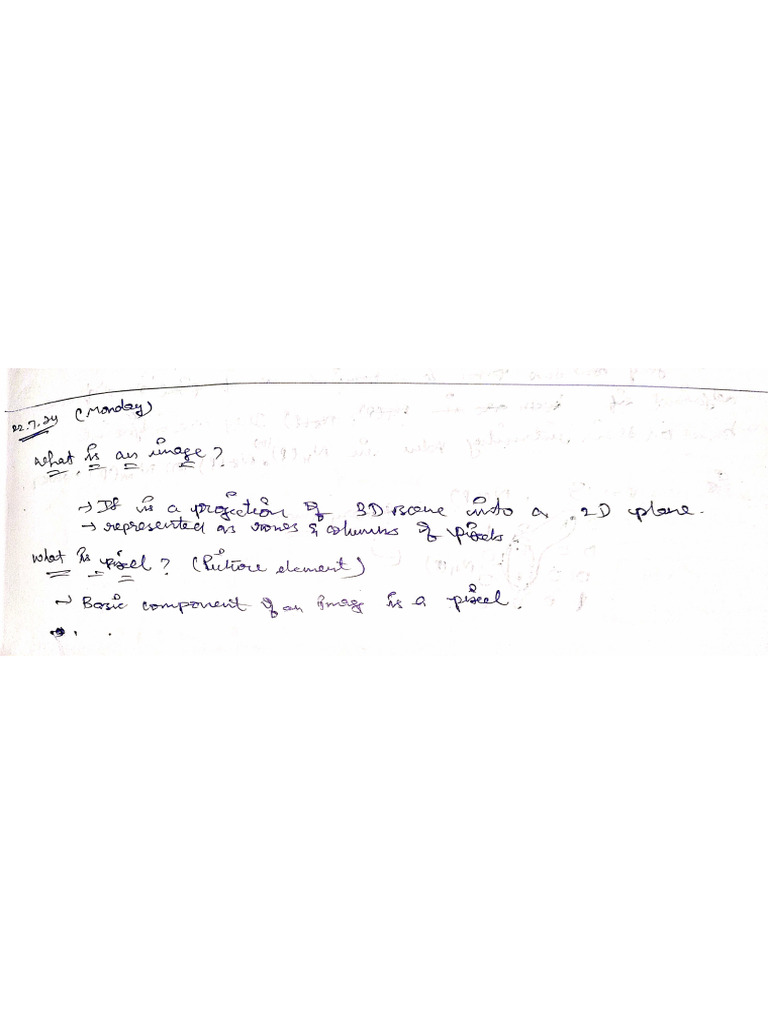 22.7.24 (Monday)
What is an image?
→ It is a projection of 3D scene into a 2D plane.
→ represented as rows & columns of pixels.
What is pixel? (Picture element)
→ Basic component of an imag is a pixel.